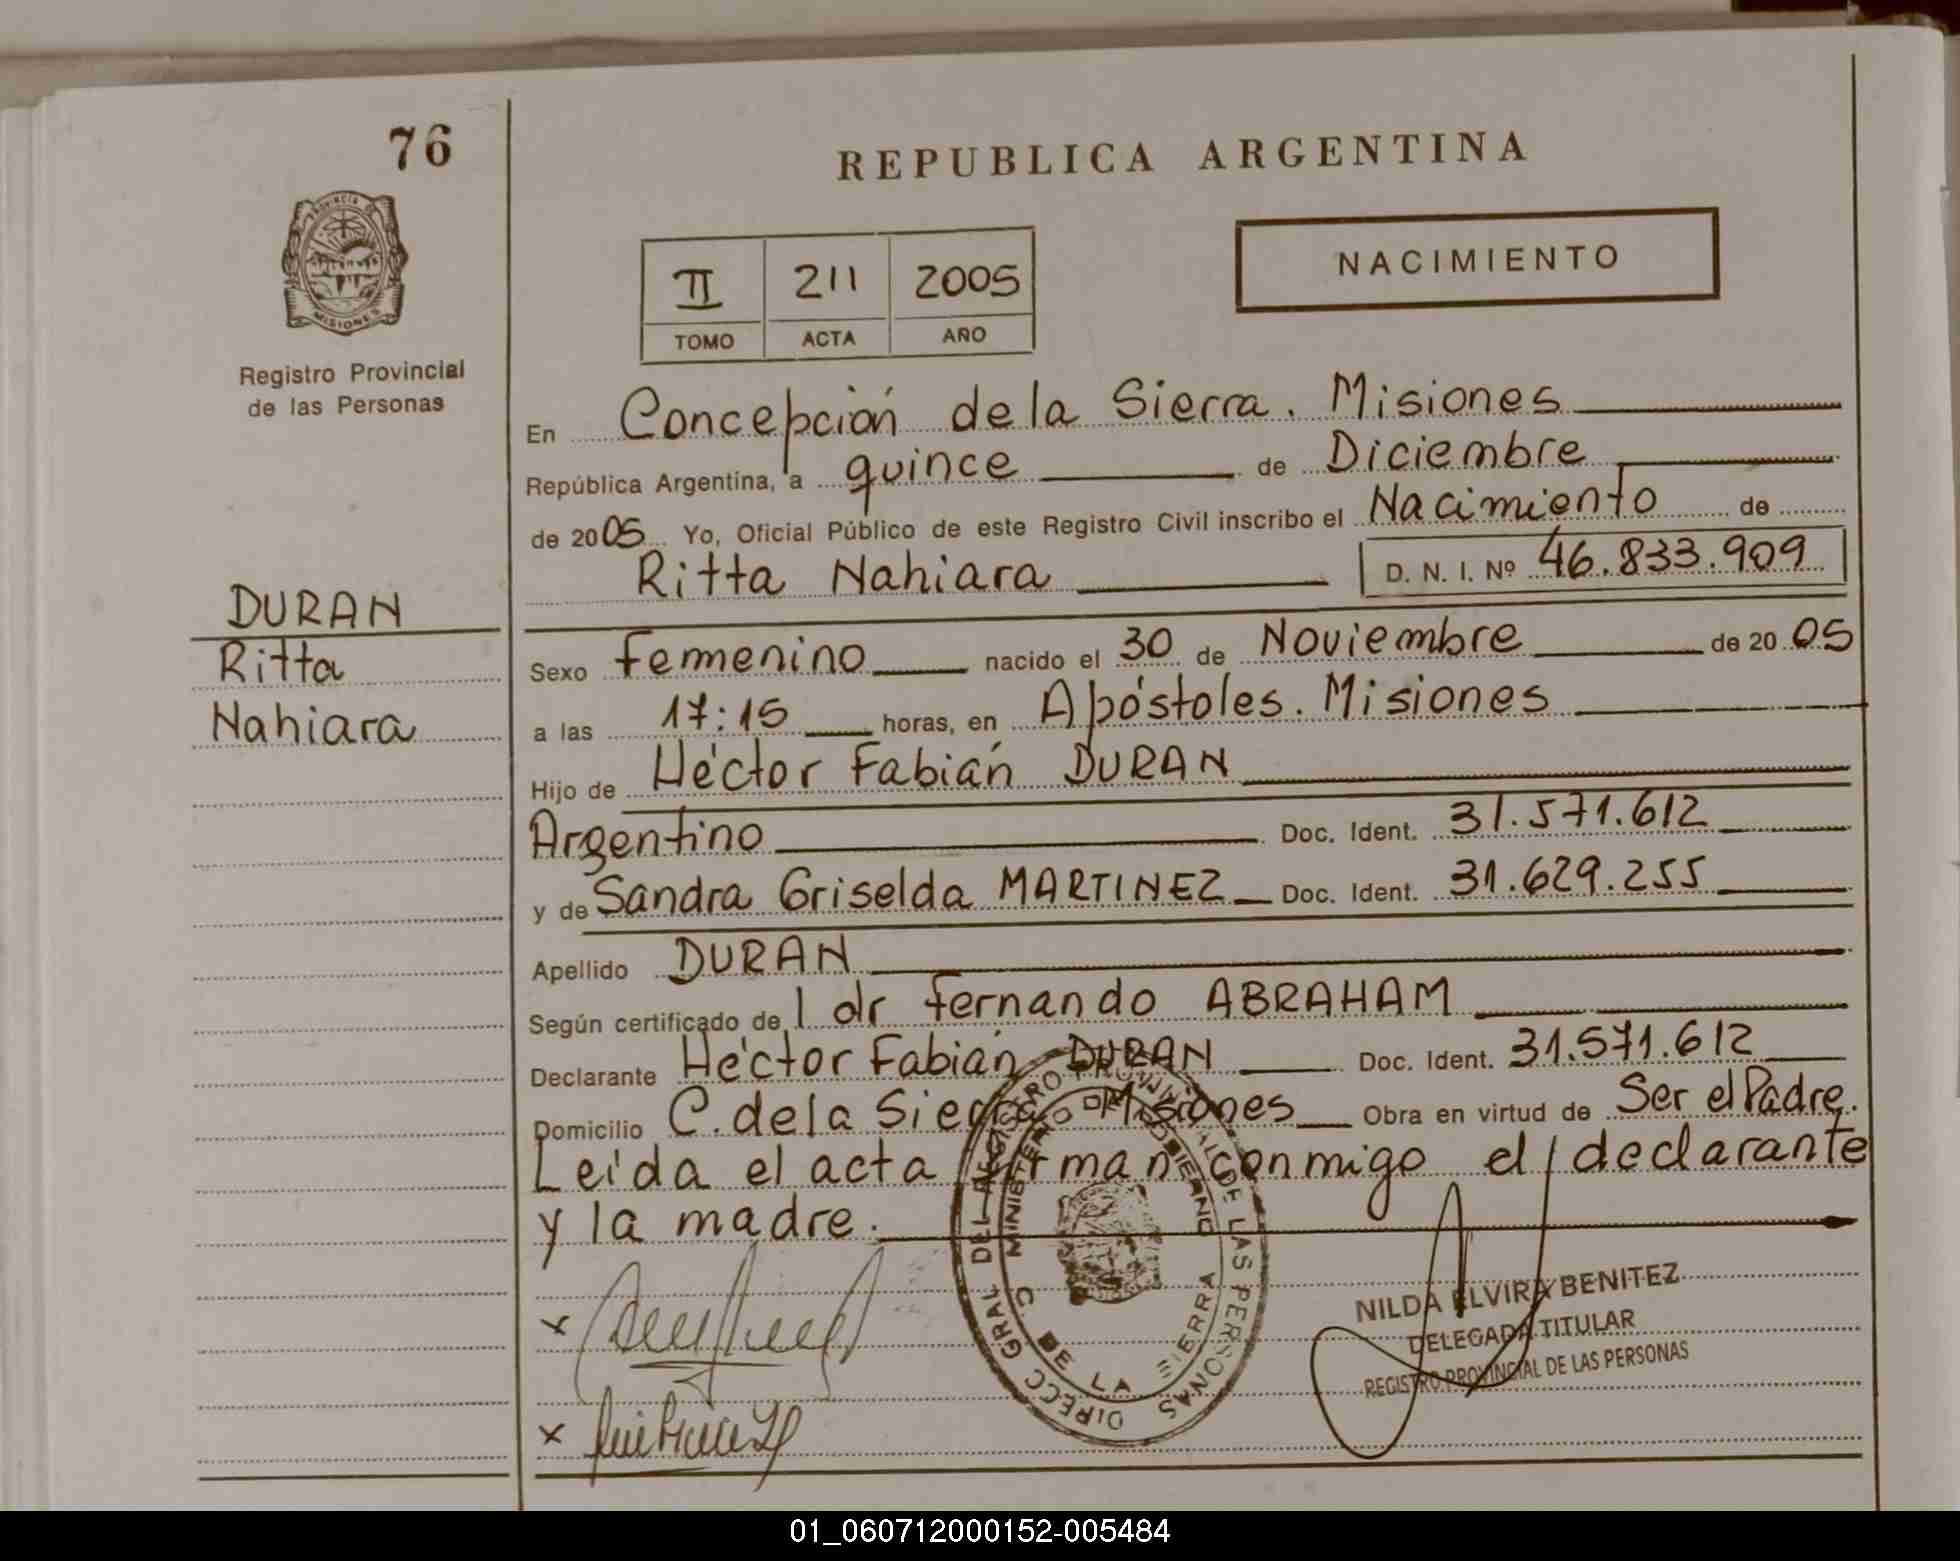 76
REPUBLICA ARGENTINA
PROVINCIA DE
MISIONES
Registro Provincial
de las Personas
II 211 2005
TOMO ACTA AÑO
NACIMIENTO
En Concepción de la Sierra. Misiones
República Argentina, a quince de Diciembre
de 2005 Yo, Oficial Público de este Registro Civil inscribo el Nacimiento de
Ritta Nahiara D. N. I. Nº 46.833.909
DURAN
Ritta
Nahiara
Sexo Femenino nacido el 30 de Noviembre de 20 05
a las 17:15 horas, en Apóstoles. Misiones
Hijo de Héctor Fabián DURAN
Argentino Doc. Ident. 31.571.612
y de Sandra Griselda MARTINEZ Doc. Ident. 31.629.255
Apellido DURAN
Según certificado de l dr Fernando ABRAHAM
Declarante Héctor Fabián DURAN Doc. Ident. 31.571.612
Domicilio C. de la Sierra Misiones Obra en virtud de Ser el Padre.
Leída el acta firman conmigo el declarante
y la madre.
DIRECC GRAL DEL REGISTRO PROVINCIAL DE LAS PERSONAS
MINISTERIO DE GOBIERNO
C. DE LA SIERRA
NILDA ELVIRA BENITEZ
DELEGADA TITULAR
REGISTRO PROVINCIAL DE LAS PERSONAS
x
x
01_060712000152-005484